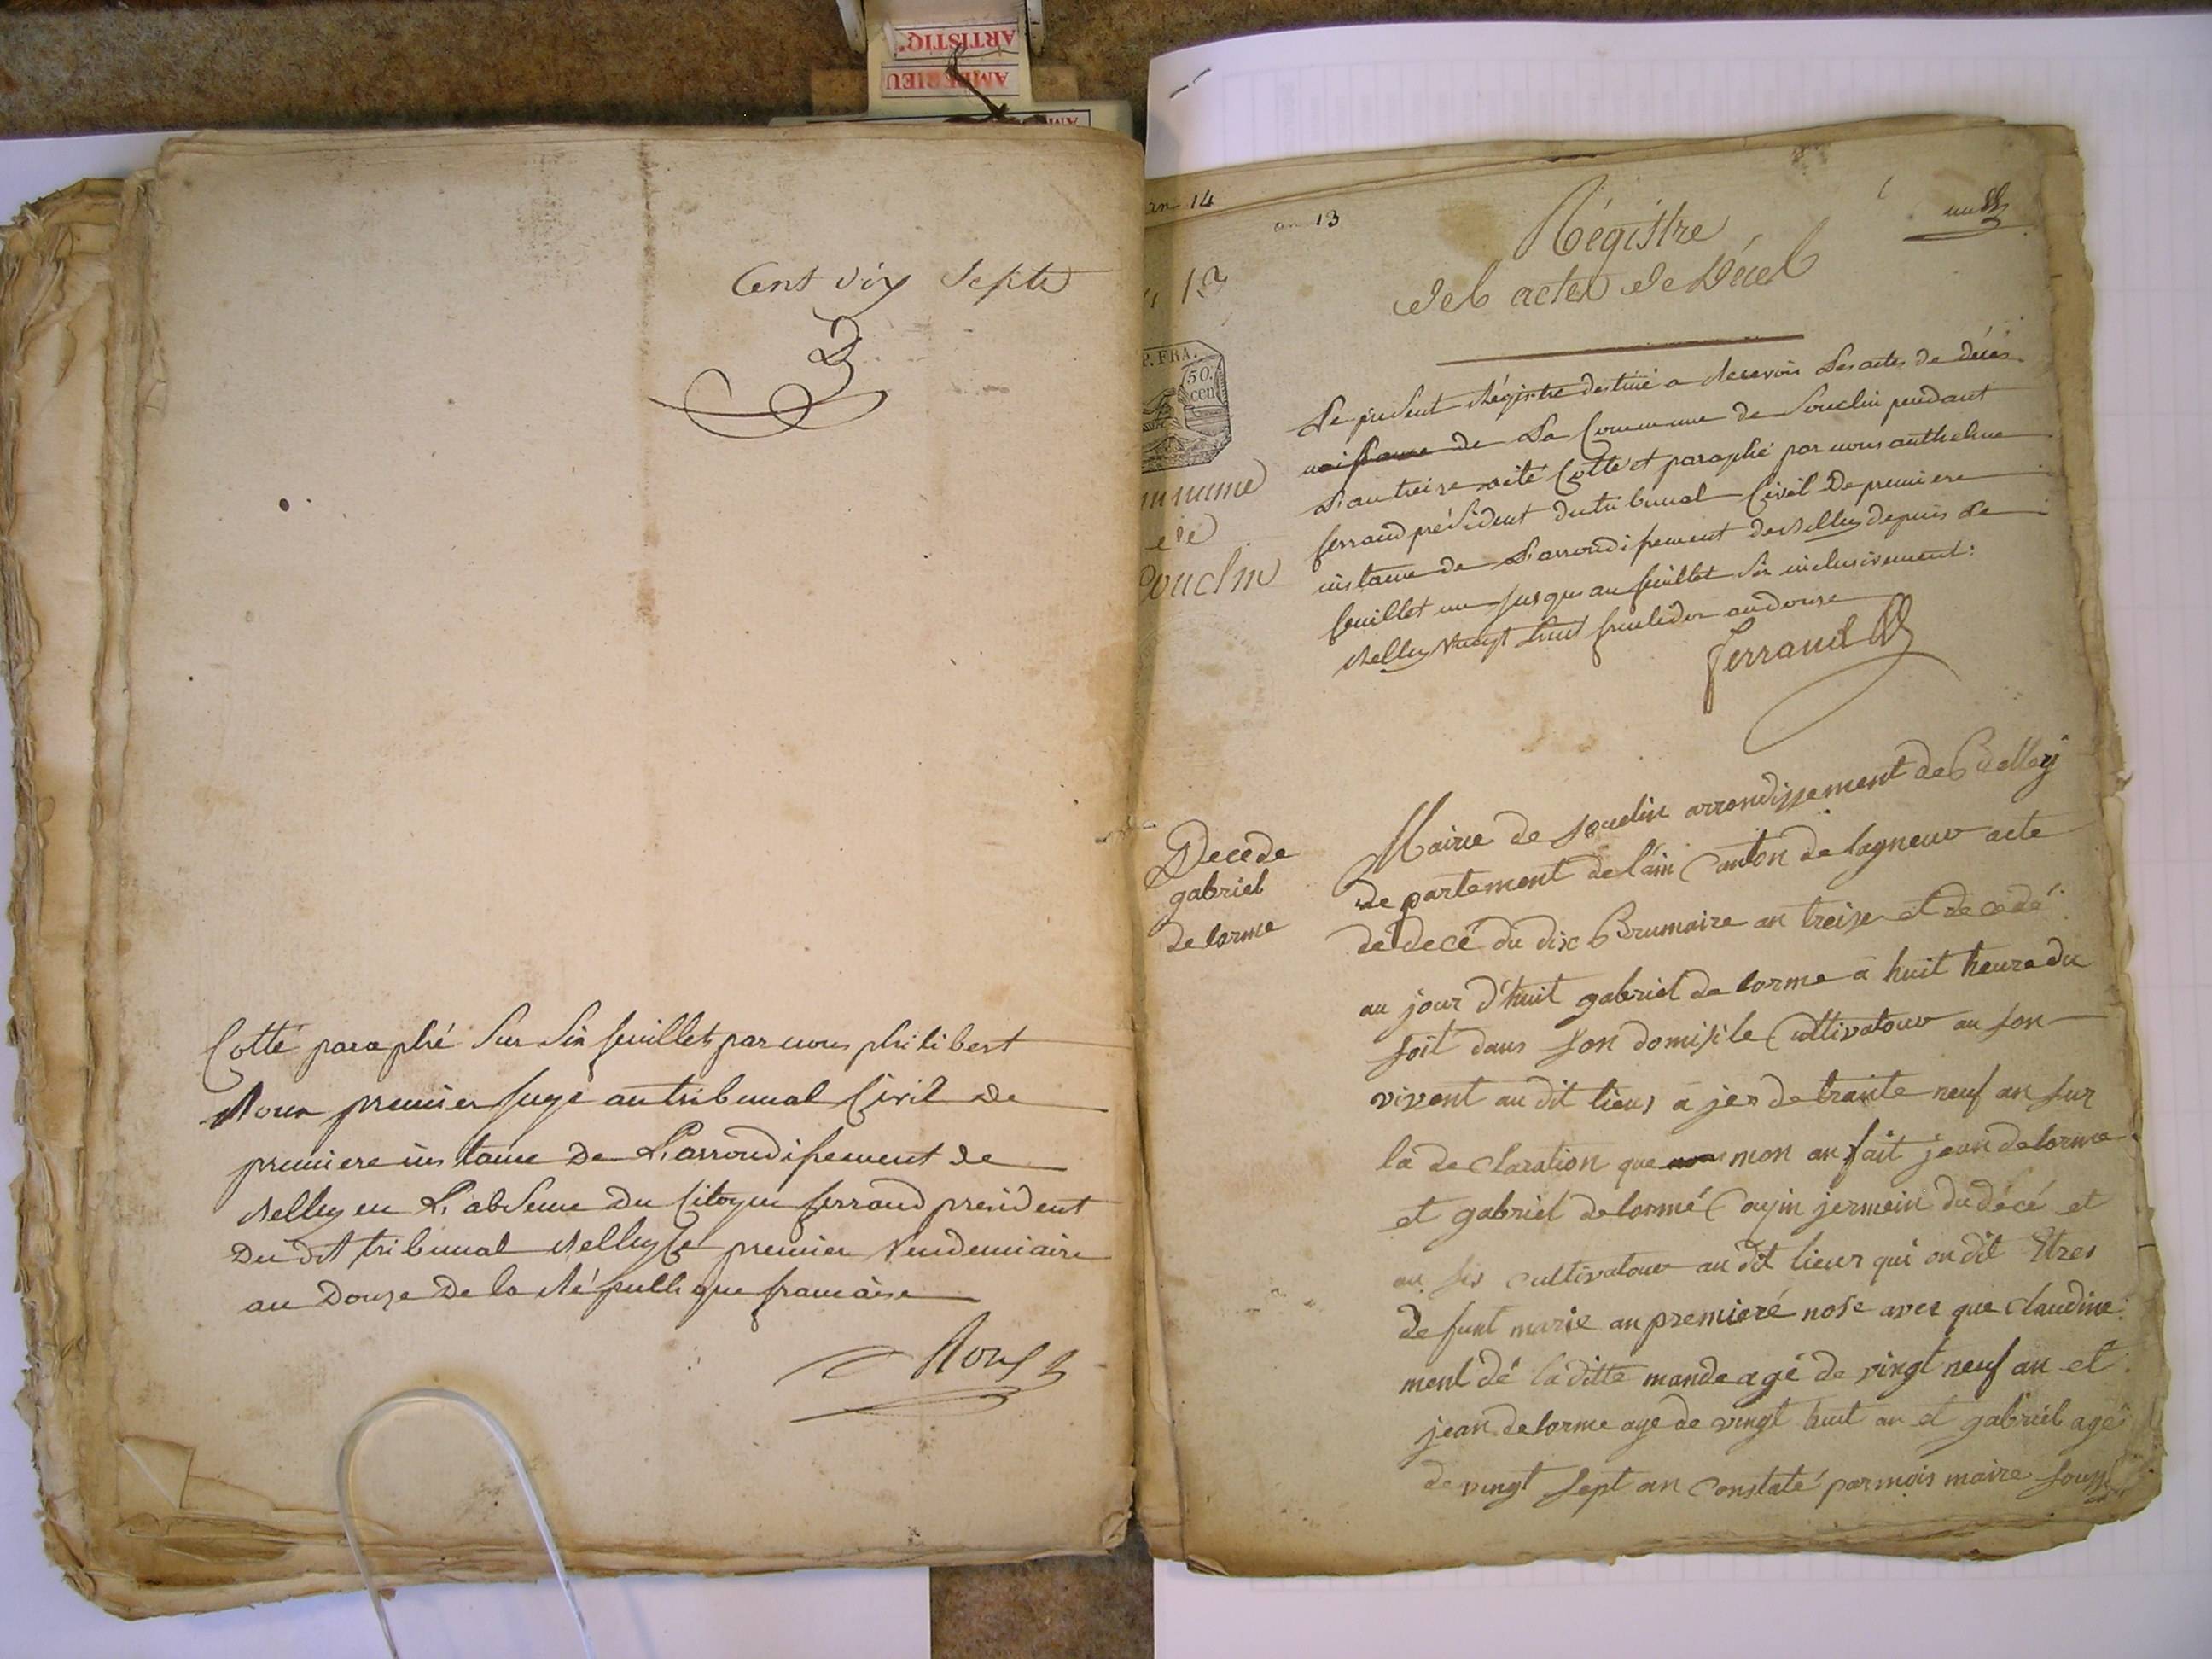 ARTISTIQ'
AMBERIEU
Cent dix Septe
Cotté paraphé Sur Six feuillets par nous philibert
Roux premier juge au tribunal Civil de
premiere instance De L'arrondissement de
Belley en L'absence Du Citoyen ferrand president
Du dit tribunal Belley Le premier Vendemiaire
an Douze De la République francaise
Roux
an 14
an 13
un
Régistre
des actes de Décès
Le présent Régistre destiné a Recevoir Les actes de décès
naissance de La Commune de Souclin pendant
L'an treize a été Cotté et paraphé par nous anthelme
ferrand président du tribunal Civil De premiere
instance de L'arrondissement de Belley depuis Le
feuillet un jusqu'au feuillet Six inclusivement:
Belley Vingt huit fructidor an douze
ferrand
13
P. FRA.
50.
cen
mmune
de
Souclin
Decé de
gabriel
de lorme
Mairie de souclin arrondissement de Belley
departement de l'ain Canton de lagneux acte
de decé du dix Brumaire an treize et decedé
au jour d'huit gabriel de lorme a huit heure du
soit dans son domisile Cultivatour au son
vivent au dit lieux a jes de trante neuf an sur
la declaration que mon an fait jean delorme
et gabriel delormé Cousin jermein du décé et
au ses cultivatour au dit lieux qui on dit Etres
de funt marie an premieré nose avec que claudine
ment dé la ditte mande agé de vingt neuf an et
jean delorme agé de vingt huit an et gabriel agé
de vingt sept an Constaté par mois maire Souss